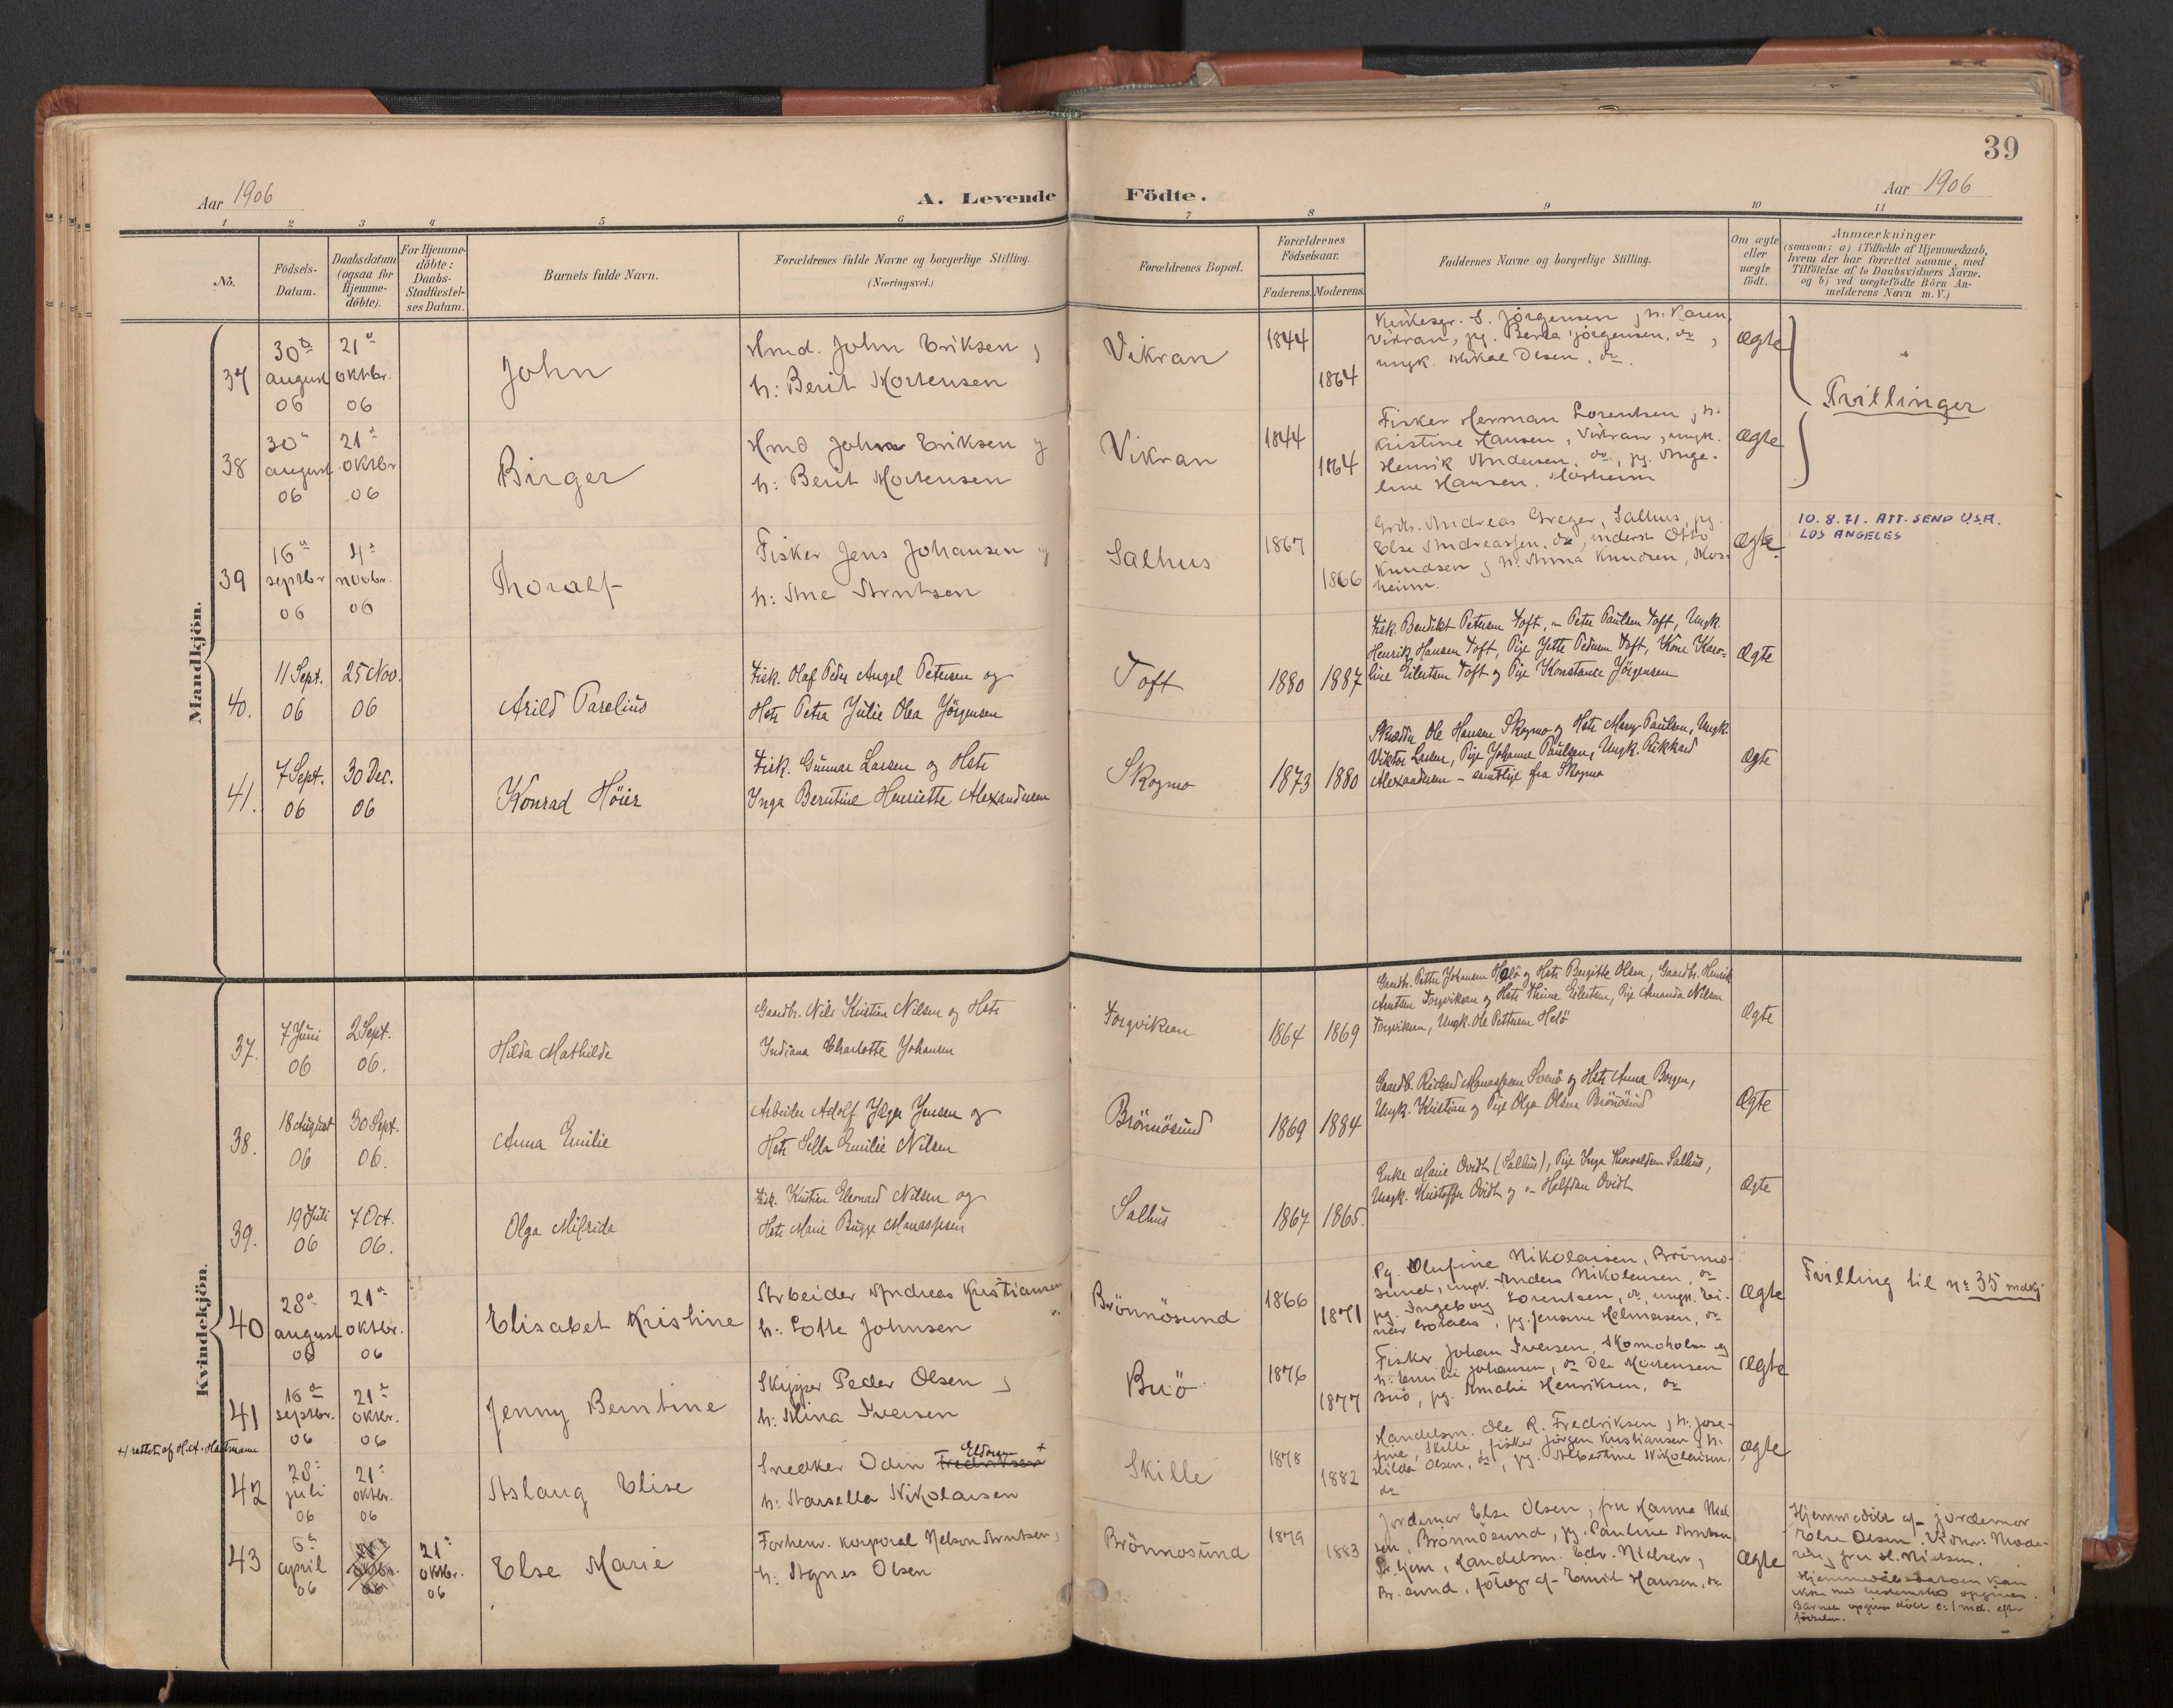 39
Aar 1906
A. Levende Födte.
Aar 1906
1 2 3 4 5 6 7 8 9 10 11
No.
Födsels-
Datum.
Daabsdatum
(ogsaa for
Hjemme-
döbte).
For Hjemme-
döbte:
Daabs-
Stadfæstel-
ses Datum.
Barnets fulde Navn.
Forældrenes fulde Navne og borgerlige Stilling.
(Næringsvei.)
Forældrenes Bopæl.
Forældrenes
Födselsaar.
Faderens. Moderens.
Faddernes Navne og borgerlige Stilling.
Om ægte
eller
uægte
födt.
Anmærkninger
(saasom: a) i Tilfælde af Hjemmedaab,
hvem der har forrettet samme, med
Tilföielse af to Daabsvidners Navne,
og b) ved uægtefödte Börn An-
melderens Navn m. V.)
Mandkjön.
37
30te
august
06
21de
oktbr.
06
John
Hmd. John Eriksen og
h: Berit Mortensen
Vikran
1844
1864
Kirkesgr. S. Jörgensen og h: Karen,
Vikran, pg. Berta Jörgensen, do,
ungk. Mikal Olsen, do.
ægte
Tvillinger
38
30
august
06
21
oktbr
06
Birger
Hmd John Eriksen og
h: Berit Mortensen
Vikran
1844
1864
Fisker Herman Lorentsen og h.
Kristine Hansen, Vikran, ungk.
Henrik Andersen, do, pg. Ange-
line Hansen, Mosheim
ægte
39
16
septbr
06
4
novbr.
06
Thoralf
Fisker Jens Johansen og
h: Ane Arntsen
Salhus
1867
1866
Grdbr. Andreas Greger, Salhus, pg.
Else Andreassen, do, inderst Otto
Knudsen og h: Anna Knudsen, Mos-
heim.
ægte
10.8.71. ATT. SEND U.S.A.
LOS ANGELES
40.
11 Sept.
06
25 Nov.
06
Arild Parelius
Fisk. Olaf Peder Angel Petersen og
Hstr Petra Julie Olea Jörgensen
Toft
1880 1887
Fisk. Bendikt Petersen Toft, " Peter Paulsen Toft, Ungk.
Henrik Hansen Toft, Pige Jette Pedersen Toft, Kone Karo-
line Eilertsen Toft og Pige Konstance Jörgensen
Ægte
41.
7 Sept.
06
30 Dec.
06
Konrad Höier
Fisk. Gunnar Larsen og Hstr
Inga Berntine Henriette Alexandersen
Skogmo
1873 1880
Skrædder Ole Hansen Skogmo og Hstr Mary Paulsen, Ungk.
Viktor Larsen, Pige Johanne Paulsen, Ungk. Rikhard
Alexandersen – samtlige fra Skogmo
Ægte
Kvindekjön.
37.
7 Juni
06
2 Sept.
06.
Hilda Mathilde
Gaardbr. Nils Kristian Nilsen og Hstr
Indiana Charlotte Johansen
Torgviksen
1864 1869
Gaardb. Petter Johansen Helö og Hstr Bergitte Olsen, Gaardbr. Henrik
Arntsen Torgviksen og Hstr Thrine Eilertsen, Pige Amanda Nilsen
Torgviksen, Ungk. Ole Pettersen Helö
Ægte
38.
18 August
06
30 Sept.
06.
Anna Emilie
Arbeider Adolf Jæger Jensen og
Hstr Sella Emilie Nilsen
Brönnösund
1869 1884
Gaardb. Richard Manassesen Svenö og Hstr Anna Borgen,
Ungk. Kristian og Pige Olga Olsen Brönösund
Ægte
39.
19 Juli
06
7 Oct.
06.
Olga Alfrida
Fisk. Kristian Edvard Nilsen og
Hstr Marie Bugge Manassesen
Salhus
1867 1865.
Enke Marie Qvidt (Salhus), Pige Inga Thorvaldsen Salhus,
Ungk. Kristoffer Qvidt og " Halfdan Qvidt
Ægte
40
28
august
06
21
oktbr.
06
Elisabet Kristine
Arbeider Andreas Kristiansen
h: Lotte Johnsen
Brönnösund
1866
1871
Pg. Olufine Nikolaisen, Brönnö-
sund, ungk. Anders Nikolaisen, do
pg. Ingeborg Lorentsen, do, ungk. Ei-
nar , pg. Jensine Helmersen, do
ægte
Tvilling til no 35 mdkj
41
16
septbr.
06
21
oktbr.
06
Jenny Berntine
Skipper Peder Olsen og
h: Mina Iversen
Buö
1876
1877
Fisker Johan Iversen, Skomoholm og
h: Emilie Johansen, do Ole Mortensen
Buö, pg. Amalie Henriksen, do
ægte
+) rettet af H.A. Hartmann
42
28
juli
06
21
oktbr.
06
Aslaug Elise
Snedker Odin Fredriksen Eldøen +
h: Marsella Nikolaisen
Skille
1878
1882
Handelsm. Ole R. Fredriksen og h: Jose-
fine, Skille, fisker Jörgen Kristiansen og h:
Hilda Olsen, do, pg. Albertine Nikolaisen,
do
ægte
43
6
april
06
21
oktbr.
06
21
oktbr.
06
Else Marie
Forhenv. korporal Nelson Arntsen,
h: Agnes Olsen
Brönnösund
1879
1883
Jordemor Else Olsen, fru Hanna Niel-
sen, Brönnösund, pg. Pauline Arntsen
Br. hjem, Handelsm. Edv. Nielsen,
Br. sund, fotograf Emil Hansen, do
ægte
Hjemmedöbt af jordemor
Else Olsen. Vidner: Mode-
ren og fru H. Nielsen.
Hjemmedaabsdatoen kan
ikke med bestemthed opgives.
Barnet opgives döbt c: 1 md. efter
födselen.